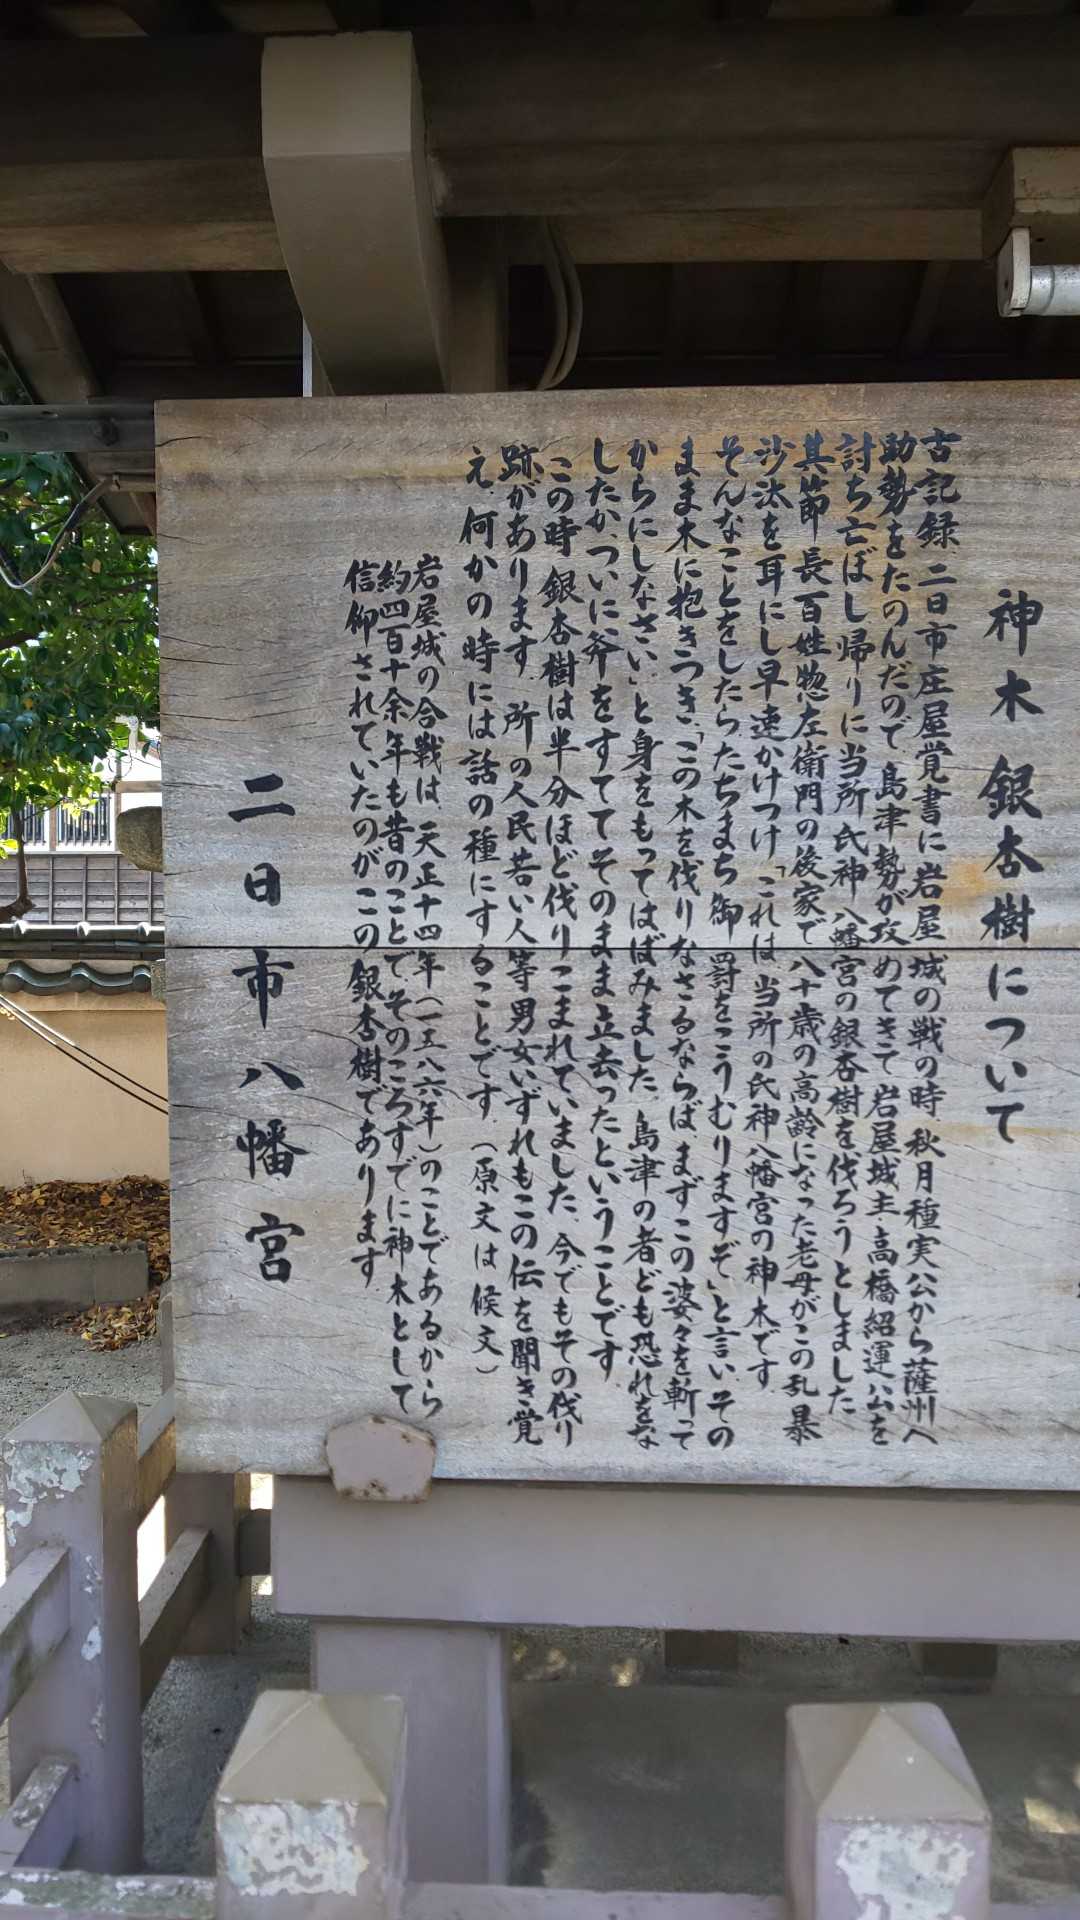 神木銀杏樹について
古記録、二日市庄屋覚書に岩屋城の戦の時、秋月種実公から薩州へ
助勢をたのんだので島津勢が攻めてきて岩屋城主高橋紹運公を
討ち亡ぼし帰りに当所氏神八幡宮の銀杏樹を伐ろうとしました
其節長百姓惣左衛門の後家で八十歳の高齢になった老母がこの乱暴
沙汰を耳にし早速かけつけ「これは当所の氏神八幡宮の神木です
そんなことをしたらたちまち御罰をこうむりますぞ」と言い、その
まま木に抱きつき、「この木を伐りなさるならば、まずこの婆々を斬って
からにしなさい」と身をもってはばみました、島津の者ども恐れをな
したか、ついに斧をすててそのまま立去ったということです
この時銀杏樹は半分ほど伐りこまれていました、今でもその伐り
跡があります、所の人民若い人等男女いずれもこの伝を聞き覚
え、何かの時には話の種にすることです、(原文は候文)
岩屋城の合戦は、天正十四年(一五八六年)のことであるから
約四百十余年も昔のことで、そのころすでに神木として
信仰されていたのがこの銀杏樹であります
二日市八幡宮